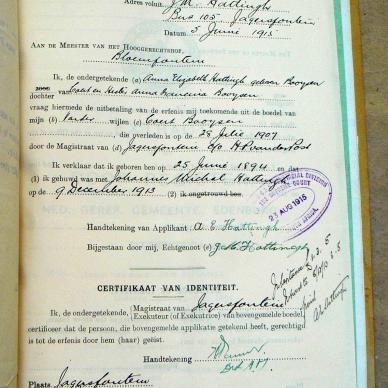 Adres voluit J. M. Hattingh
Bus 105 Jagersfontein
Datum 5 Junie 1915
AAN DE MEESTER VAN HET HOOGGERECHTSHOF,
Bloemfontein
Ik, de ondergetekende (a) Anna Elizabeth Hattingh geboren Booysen
dochter van Coert en Hester Anna Francina Booysen
vraag hiermede de uitbetaling van de erfenis mij toekomende uit de boedel van
mijn (b) Vader wijlen (c) Coert Booysen
die overleden is op de 28 Julie 1907
door de Magistraat van (d) Jagersfontein c/o H P van der Post
Ik verklaar dat ik geboren ben op 25 Junie 1894 en dat
(1) ik gehuwd was met Johannes Michel Hattingh
op de 9 December 1913 (2) ik ongetrouwd ben.
23 AUG 1915
Handtekening van Applikant A. E. Hattingh
Bijgestaan door mij, Echtgenoot (e) J. M. Hattingh
CERTIFIKAAT VAN IDENTITEIT.
Ik, de ondergetekende, Magistraat van Jagersfontein
Exekuteur (of Executrice) van bovengemelde boedel,
certificeer dat de persoon, die bovengemelde applikatie getekend heeft, gerechtigd
is tot de erfenis door hem (haar) geëist.
Handtekening
Plaats Jagersfontein